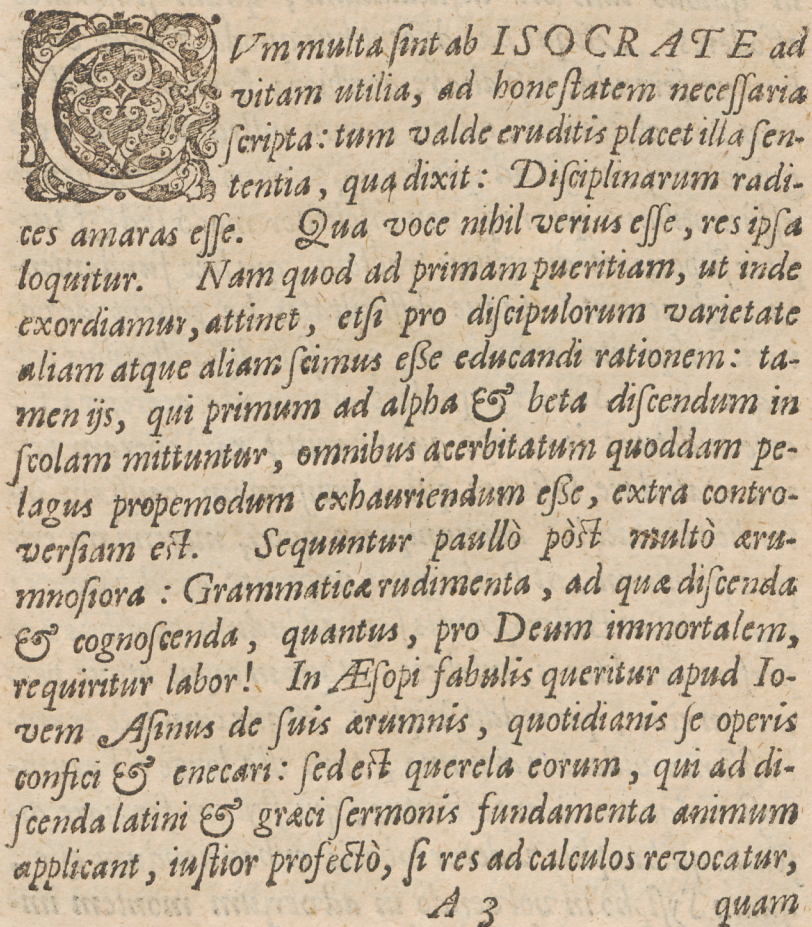 CVm multa ſint ab ISOCRATE ad
vitam utilia, ad honeſtatem neceſſaria
ſcripta: tum valde eruditis placet illa ſen-
tentia, qua dixit: Diſciplinarum radi-
ces amaras eſſe. Qua voce nihil verius eſſe, res ipſa
loquitur. Nam quod ad primam pueritiam, ut inde
exordiamur, attinet, etſi pro diſcipulorum varietate
aliam atque aliam ſcimus eſße educandi rationem: ta-
men ijs, qui primum ad alpha & beta diſcendum in
ſcolam mittuntur, omnibus acerbitatum quoddam pe-
lagus propemodum exhauriendum eſße, extra contro-
verſiam eſt. Sequuntur paullò pòſt multò æru-
mnoſiora: Grammaticæ rudimenta, ad quæ diſcenda
& cognoſcenda, quantus, pro Deum immortalem,
requiritur labor! In Æſopi fabulis queritur apud Io-
vem Aſinus de ſuis ærumnis, quotidianis ſe operis
confici & enecari: ſed eſt querela eorum, qui ad di-
ſcenda latini & græci ſermonis fundamenta animum
applicant, iuſtior profectò, ſi res ad calculos revocatur,
A 3 quam